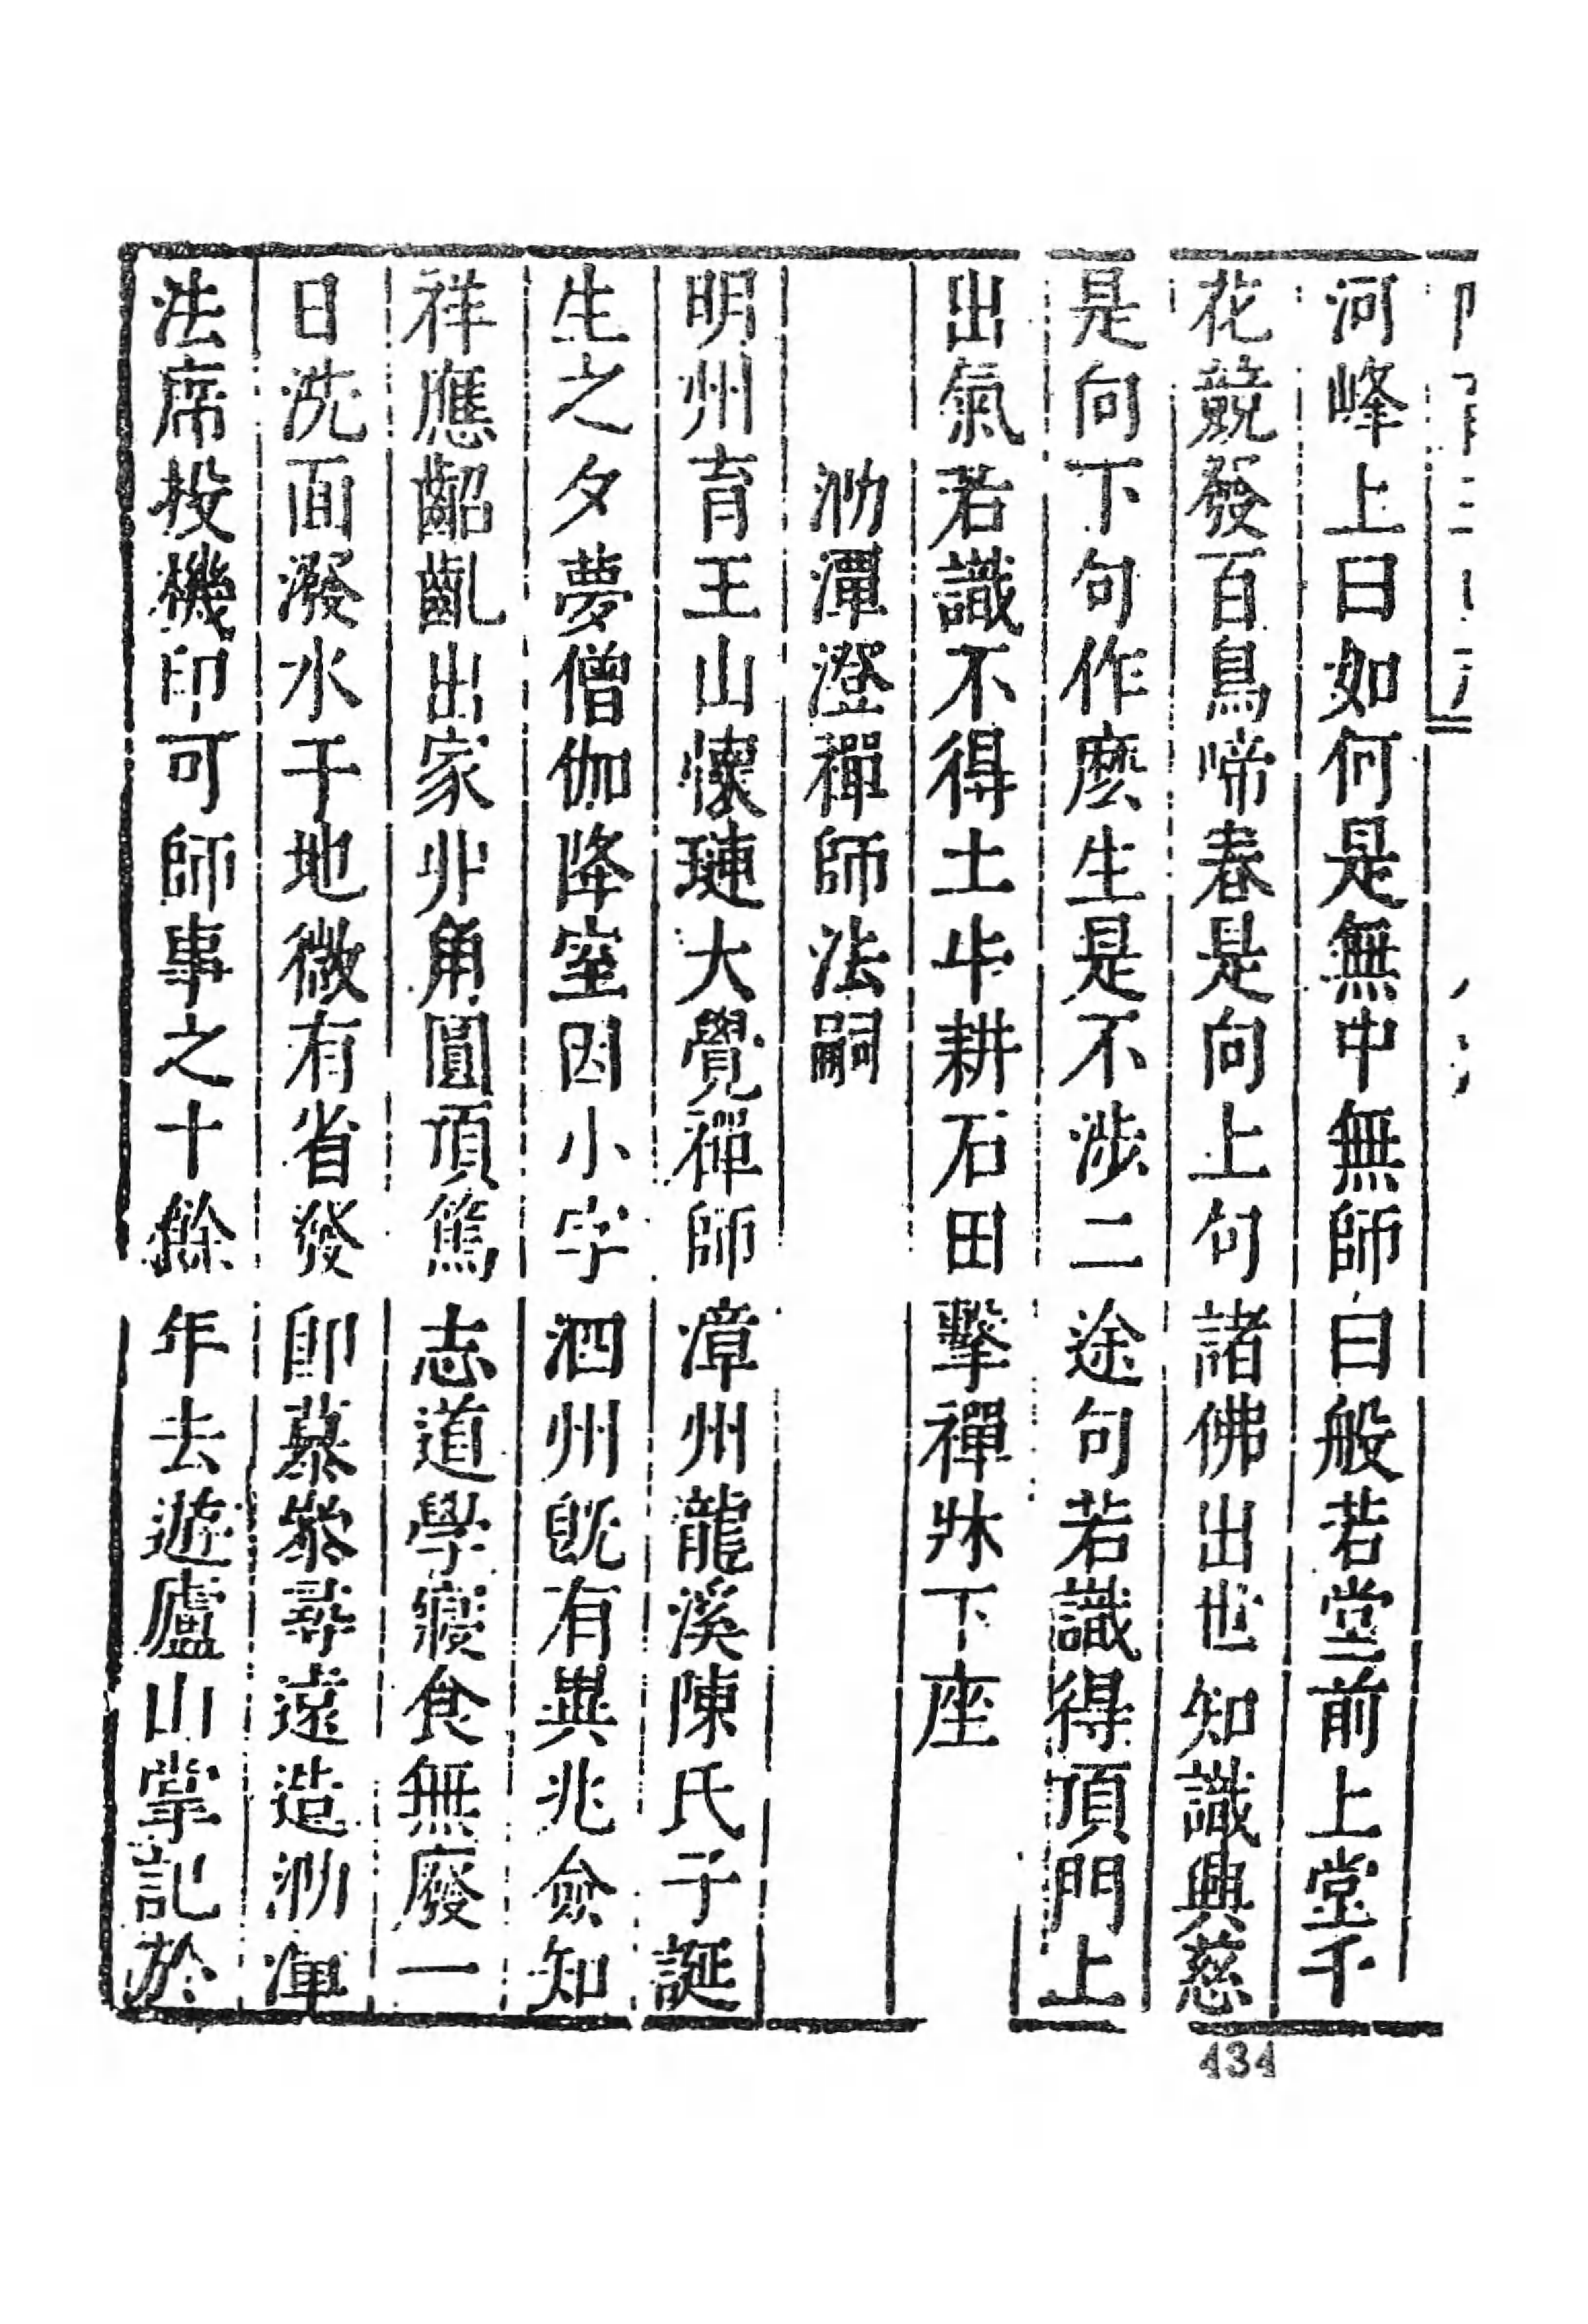 河峰上曰如何是無中無師曰般若堂前上堂千
花競發百鳥啼春是向上句諸佛出世知識興慈
是向下句作麽生是不涉二途句若識得頂門上
出氣若識不得土牛耕石田擊禪牀下座
泐潭澄禪師法嗣
明州育王山懷璉大覺禪師漳州龍溪陳氏子誕
生之夕夢僧伽降室因小字泗州既有異兆僉知
祥應齠齔出家丱角圓頂篤志道學寢食無廢一
日洗面潑水于地微有省發卽慕參尋遠造泐潭
法席投機印可師事之十餘年去遊廬山掌記於
434